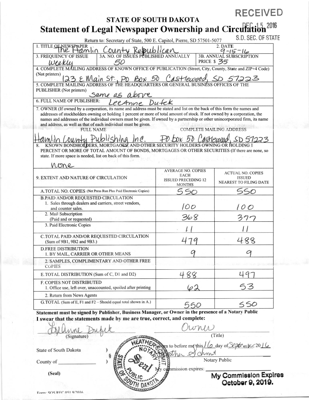 RECEIVED
DEC 15 2016
S.D. SEC. OF STATE
STATE OF SOUTH DAKOTA
Statement of Legal Newspaper Ownership and Circulation
Return to: Secretary of State, 500 E. Capitol, Pierre, SD 57501-5077
1. TITLE OF NEWSPAPER
The Hamlin County Republican
2. DATE
9-15-16
3. FREQUENCY OF ISSUE
Weekly
3A. NO. OF ISSUES PUBLISHED ANNUALLY
50
3B. ANNUAL SUBSCRIPTION
PRICE $ 35
4. COMPLETE MAILING ADDRESS OF KNOWN OFFICE OF PUBLICATION (Street, City, County, State and ZIP+4 Code)
(Not printers)
123 E Main St, PO Box 50 Castlewood, SD 57223
5. COMPLETE MAILING ADDRESS OF THE HEADQUARTERS OR GENERAL BUSINESS OFFICES OF THE
PUBLISHER (Not printers)
Same as above
6. FULL NAME OF PUBLISHER:
LeeAnne Dufek
7. OWNER (If owned by a corporation, its name and address must be stated and list on the back of this form the names and
addresses of stockholders owning or holding 1 percent or more of total amount of stock. If not owned by a corporation, the
names and addresses of the individual owners must be given. If owned by a partnership or other unincorporated firm, its name
and address, as well as that of each individual must be given.)
FULL NAME
COMPLETE MAILING ADDRESS
Hamlin County Publishing Inc.
PO Box 50 Castlewood, SD 57223
8. KNOWN BONDHOLDERS, MORTGAGES AND OTHER SECURITY HOLDERS OWNING OR HOLDING 1
PERCENT OR MORE OF TOTAL AMOUNT OF BONDS, MORTGAGES OR OTHER SECURITIES (If there are none, so
state. If more space is needed, list on back of this form.
none
9. EXTENT AND NATURE OF CIRCULATION
AVERAGE NO. COPIES
EACH
ISSUED PRECEDING 12
MONTHS
ACTUAL NO. COPIES
ISSUED
NEAREST TO FILING DATE
A. TOTAL NO. COPIES (Net Press Run Plus Paid Electronic Copies)
550
550
B. PAID AND/OR REQUESTED CIRCULATION
1. Sales through dealers and carriers, street vendors,
and counter sales.
100
100
2. Mail Subscription
(Paid and or requested)
368
377
3. Paid Electronic Copies
11
11
C. TOTAL PAID AND/OR REQUESTED CIRCULATION
(Sum of 9B1, 9B2 and 9B3.)
479
488
D. FREE DISTRIBUTION
1. BY MAIL, CARRIER OR OTHER MEANS
9
9
2. SAMPLES, COMPLIMENTARY AND OTHER FREE
COPIES
E. TOTAL DISTRIBUTION (Sum of C, D1 and D2)
488
497
F. COPIES NOT DISTRIBUTED
1. Office use, left over, unaccounted, spoiled after printing
62
53
2. Return from News Agents
G. TOTAL (Sum of E, F1 and F2 - Should equal total shown in A.)
550
550
Statement must be signed by Publisher, Business Manager, or Owner in the presence of a Notary Public
I swear that the statements made by me are true, correct, and complete:
LeeAnne Dufek
Owner
(Signature)
(Title)
State of South Dakota )
County of
(Seal)
HEATHER
NOTARY
SEAL
PUBLIC
SOUTH DAKOTA
to before me this 16 day of September 2016
Notary Public
My commission expires:
My Commission Expires
October 9, 2019.